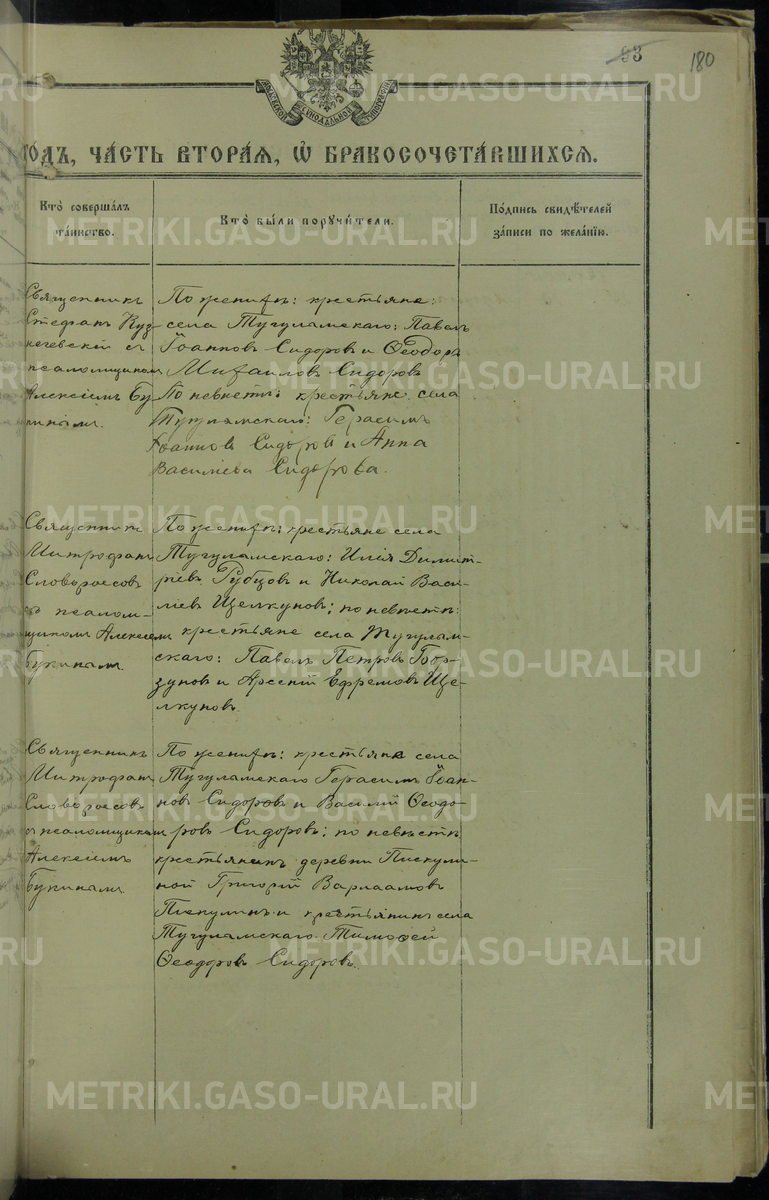 93
180
МОСКОВСКОЙ СѴНОДАЛЬНОЙ ТИПОГРАФІИ
ГО́ДЪ, ЧА́СТЬ ВТОРА́Ѧ, Ѡ҆ БРАКОСОЧЕТА́ВШИХСѦ.
Кто̀ соверша́лъ
та́инство.
Кто̀ бы́ли поручи́тели.
По́дпись свидѣ́телей
за́писи по жела́нїю.
Священникъ
Стефанъ Куз-
нечевскій съ
псаломщикомъ
Алексіемъ Бу
кинымъ.
По женихѣ: крестьяне:
села Тугулымскаго: Павелъ
Іоанновъ Сидоровъ и Ѳеодоръ
Михаиловъ Сидоровъ
По невѣстѣ: крестьяне села
Тугулымскаго: Герасимъ
Іоанновъ Сидоровъ и Анна
Васильева Сидорова.
Священникъ
Митрофанъ
Словороссовъ
съ псалом-
щикомъ Алексіемъ
Букинымъ.
По женихѣ: крестьяне села
Тугулымскаго: Илія Димит-
ріевъ Рубцовъ и Николай Васи-
ліевъ Щелкуновъ; по невѣстѣ:
крестьяне села Тугулым-
скаго: Павелъ Петровъ Бор-
зуновъ и Арсеній Ефремовъ Ще-
лкуновъ
Священникъ
Митрофанъ
Словороссовъ
съ псаломщикомъ
Алексіемъ
Букинымъ.
По женихѣ: крестьяне села
Тугулымскаго Герасимъ Іоан-
новъ Сидоровъ и Василій Ѳеодо-
ровъ Сидоровъ; по невѣстѣ
крестьянинъ деревни Пискули-
ной Григорій Варлаамовъ
Пискулинъ и крестьянинъ села
Тугулымскаго Тимоѳей
Ѳеодоровъ Сидоровъ.
METRIKI.GASO-URAL.RU
METRIKI.GASO-URAL.RU
METRIKI.GASO-URAL.RU
METRIKI.GASO-URAL.RU
METRIKI.GASO-URAL.RU
METRIKI.GASO-URAL.RU
METRIKI.GASO-URAL.RU
METRIKI.GASO-URAL.RU